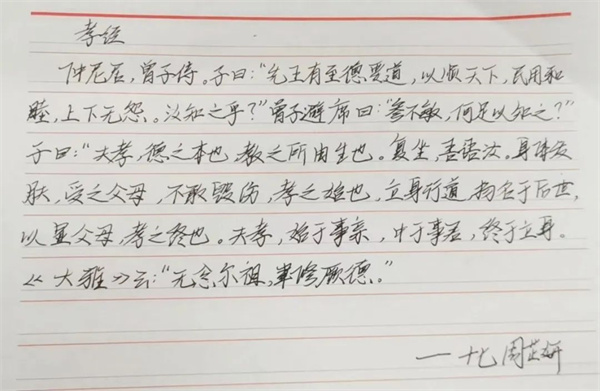 孝经
仲尼居，曾子侍。子曰：“先王有至德要道，以顺天下，民用和
睦，上下无怨。汝知之乎？”曾子避席曰：“参不敏，何足以知之？”
子曰：“夫孝，德之本也，教之所由生也。复坐，吾语汝，身体发
肤，受之父母，不敢毁伤，孝之始也，立身行道，扬名于后世，
以显父母，孝之终也。夫孝，始于事亲，中于事君，终于立身。
《大雅》云：“无念尔祖，聿修厥德。”
一十七 周芷妍